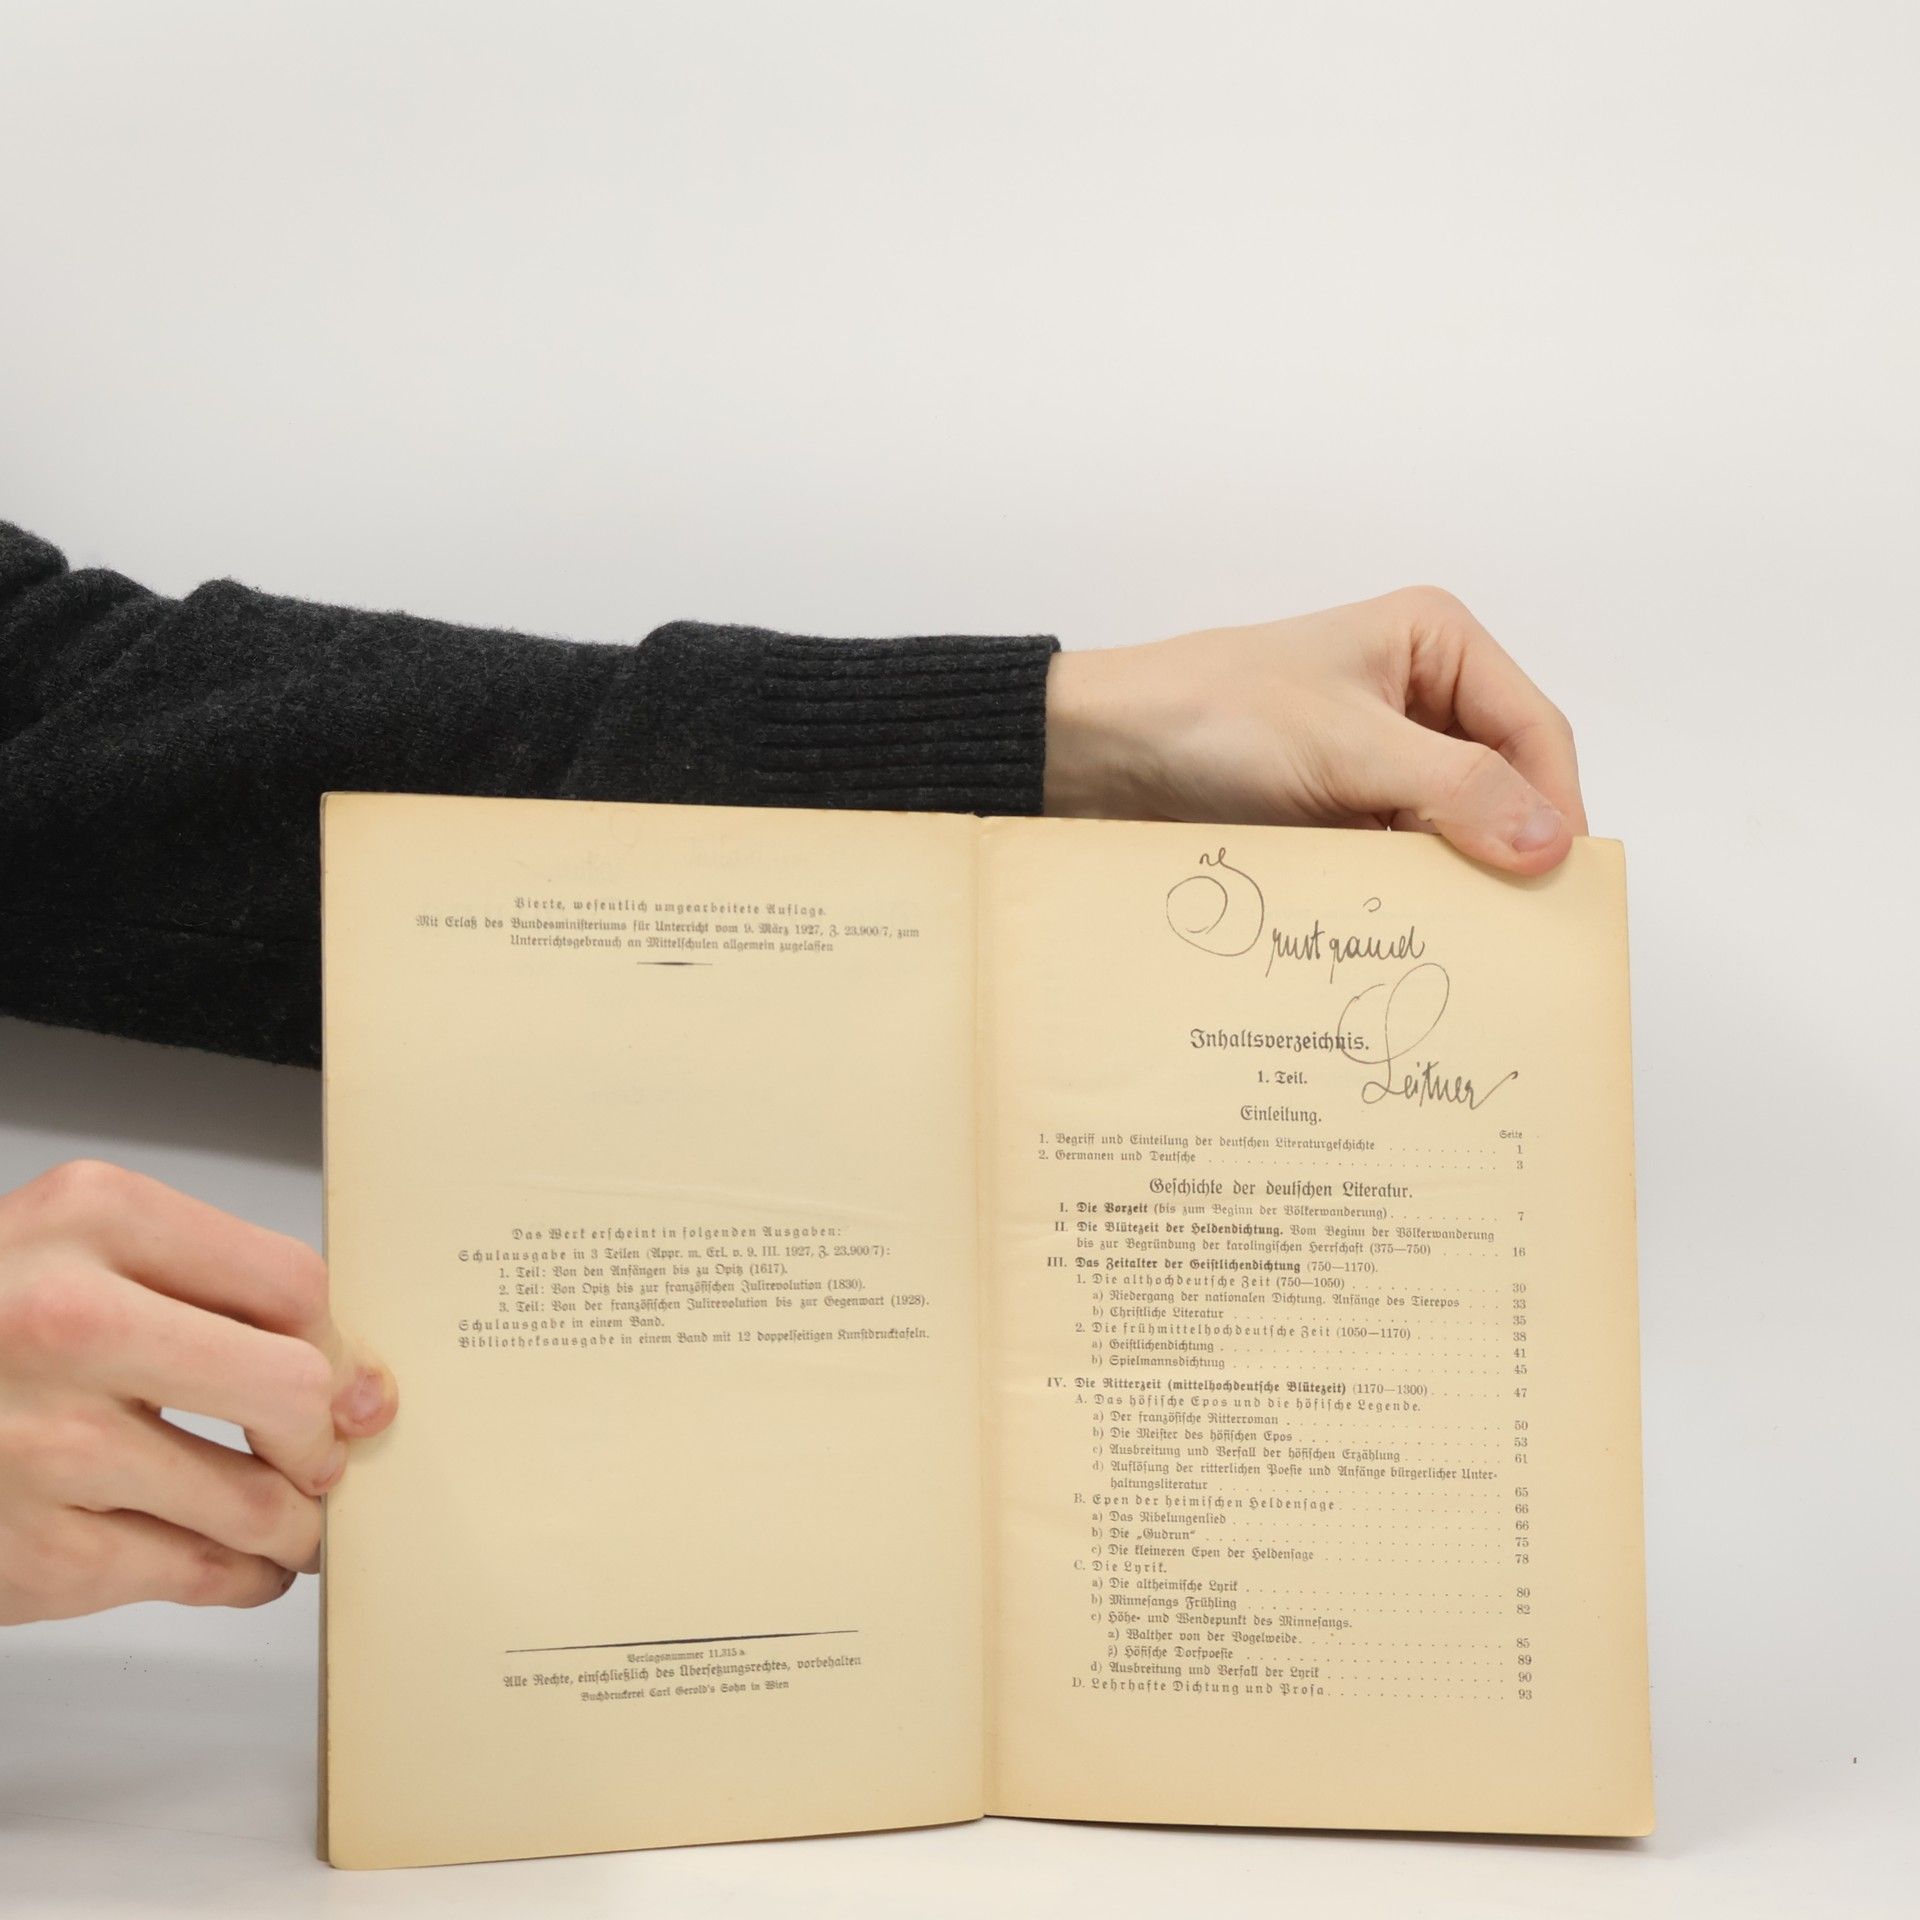 Vierte, wesentlich umgearbeitete Auflage.
Mit Erlaß des Bundesministeriums für Unterricht vom 9. März 1927, Z. 23.900/7, zum
Unterrichtsgebrauch an Mittelschulen allgemein zugelassen
Das Werk erscheint in folgenden Ausgaben:
Schulausgabe in 3 Teilen (Appr. m. Erl. v. 9. III. 1927, Z. 23.900/7):
1. Teil: Von den Anfängen bis zu Opitz (1617).
2. Teil: Von Opitz bis zur französischen Julirevolution (1830).
3. Teil: Von der französischen Julirevolution bis zur Gegenwart (1928).
Schulausgabe in einem Band.
Bibliotheksausgabe in einem Band mit 12 doppelseitigen Kunstdrucktafeln.
Verlagsnummer 11.315 a
Alle Rechte, einschließlich des Übersetzungsrechtes, vorbehalten
Buchdruckerei Carl Gerold's Sohn in Wien
Leitner
Inhaltsverzeichnis.
1. Teil.
Einleitung.
Seite
1. Begriff und Einteilung der deutschen Literaturgeschichte . . . . . . . . . 1
2. Germanen und Deutsche . . . . . . . . . . . . . . . . . . . . . . . 3
Geschichte der deutschen Literatur.
I. Die Vorzeit (bis zum Beginn der Völkerwanderung) . . . . . . . . . 7
II. Die Blütezeit der Heldendichtung. Vom Beginn der Völkerwanderung
bis zur Begründung der karolingischen Herrschaft (375—750) . . . . . 16
III. Das Zeitalter der Geistlichendichtung (750—1170).
1. Die althochdeutsche Zeit (750—1050) . . . . . . . . . . . . 30
a) Niedergang der nationalen Dichtung. Anfänge des Tierepos . . . 33
b) Christliche Literatur . . . . . . . . . . . . . . . . . . . . . 35
2. Die frühmittelhochdeutsche Zeit (1050—1170) . . . . . . . 38
a) Geistlichendichtung . . . . . . . . . . . . . . . . . . . . . . 41
b) Spielmannsdichtung . . . . . . . . . . . . . . . . . . . . . . 45
IV. Die Ritterzeit (mittelhochdeutsche Blütezeit) (1170—1300) . . . . . . 47
A. Das höfische Epos und die höfische Legende.
a) Der französische Ritterroman . . . . . . . . . . . . . . . . . 50
b) Die Meister des höfischen Epos . . . . . . . . . . . . . . . . 53
c) Ausbreitung und Verfall der höfischen Erzählung . . . . . . . . 61
d) Auflösung der ritterlichen Poesie und Anfänge bürgerlicher Unter-
haltungsliteratur . . . . . . . . . . . . . . . . . . . . . . . 65
B. Epen der heimischen Heldensage . . . . . . . . . . . . . 66
a) Das Nibelungenlied . . . . . . . . . . . . . . . . . . . . . . 66
b) Die „Gudrun“ . . . . . . . . . . . . . . . . . . . . . . . . 75
c) Die kleineren Epen der Heldensage . . . . . . . . . . . . . . 78
C. Die Lyrik.
a) Die altheimische Lyrik . . . . . . . . . . . . . . . . . . . . 80
b) Minnesangs Frühling . . . . . . . . . . . . . . . . . . . . . 82
c) Höhe- und Wendepunkt des Minnesangs.
α) Walther von der Vogelweide . . . . . . . . . . . . . . . . 85
β) Höfische Dorfpoesie . . . . . . . . . . . . . . . . . . . . 89
d) Ausbreitung und Verfall der Lyrik . . . . . . . . . . . . . . 90
D. Lehrhafte Dichtung und Prosa . . . . . . . . . . . . . . 93